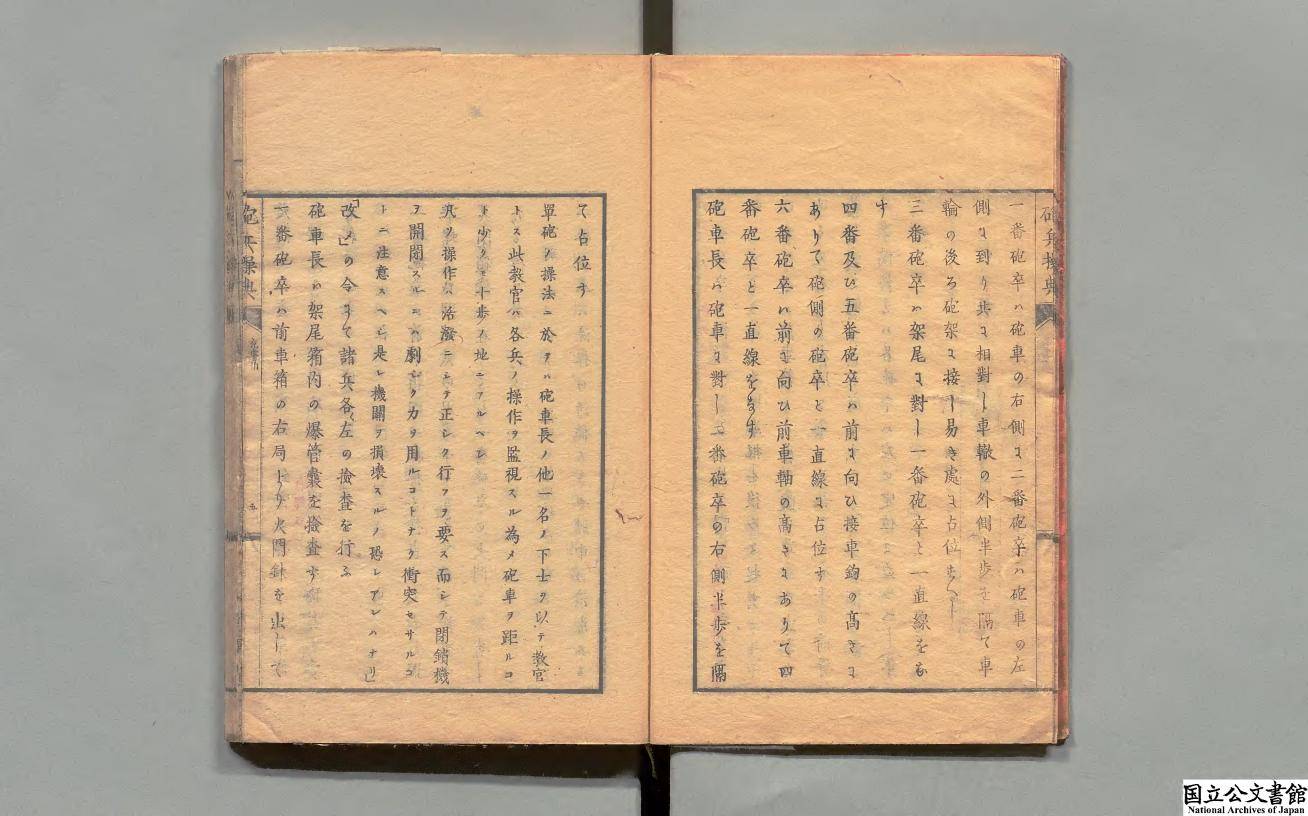 砲兵操典
一番砲卒ハ砲車の右側に二番砲卒ハ砲車の左
側に到り共に相對し車轍の外側半歩を隔て車
輪の後ろ砲架に接し易き處に占位すへし
三番砲卒ハ架尾に對し一番砲卒と一直線をな
す
四番及ひ五番砲卒ハ前に向ひ接車鉤の高さに
ありて砲側の砲卒と一直線に占位す
六番砲卒ハ前に向ひ前車軸の高さにありて四
番砲卒と一直線をなす
砲車長ハ砲車に對し二番砲卒の右側半歩を隔
て占位す
單砲ノ操法ニ於テハ砲車長ノ他一名ノ下士ヲ以テ教官
トス此教官ハ各兵ノ操作ヲ監視スル為メ砲車ヲ距ルコ
ト少クモ十歩ノ地ニアルヘシ
凡ソ操作ハ活潑ニシテ正シク行フヲ要ス而シテ閉鎖機
ヲ開閉スルニハ劇シク力ヲ用ルコトナク衝突セサルコ
トニ注意スヘシ是レ機關ヲ損壊スルノ恐レアレハナリ」
「改メ」の令にて諸兵各〻左の檢査を行ふ
砲車長ハ架尾箱内の爆管嚢を檢査す
一番砲卒ハ前車箱の右局より火門針を出して
砲兵操典
五
国立公文書館
National Archives of Japan